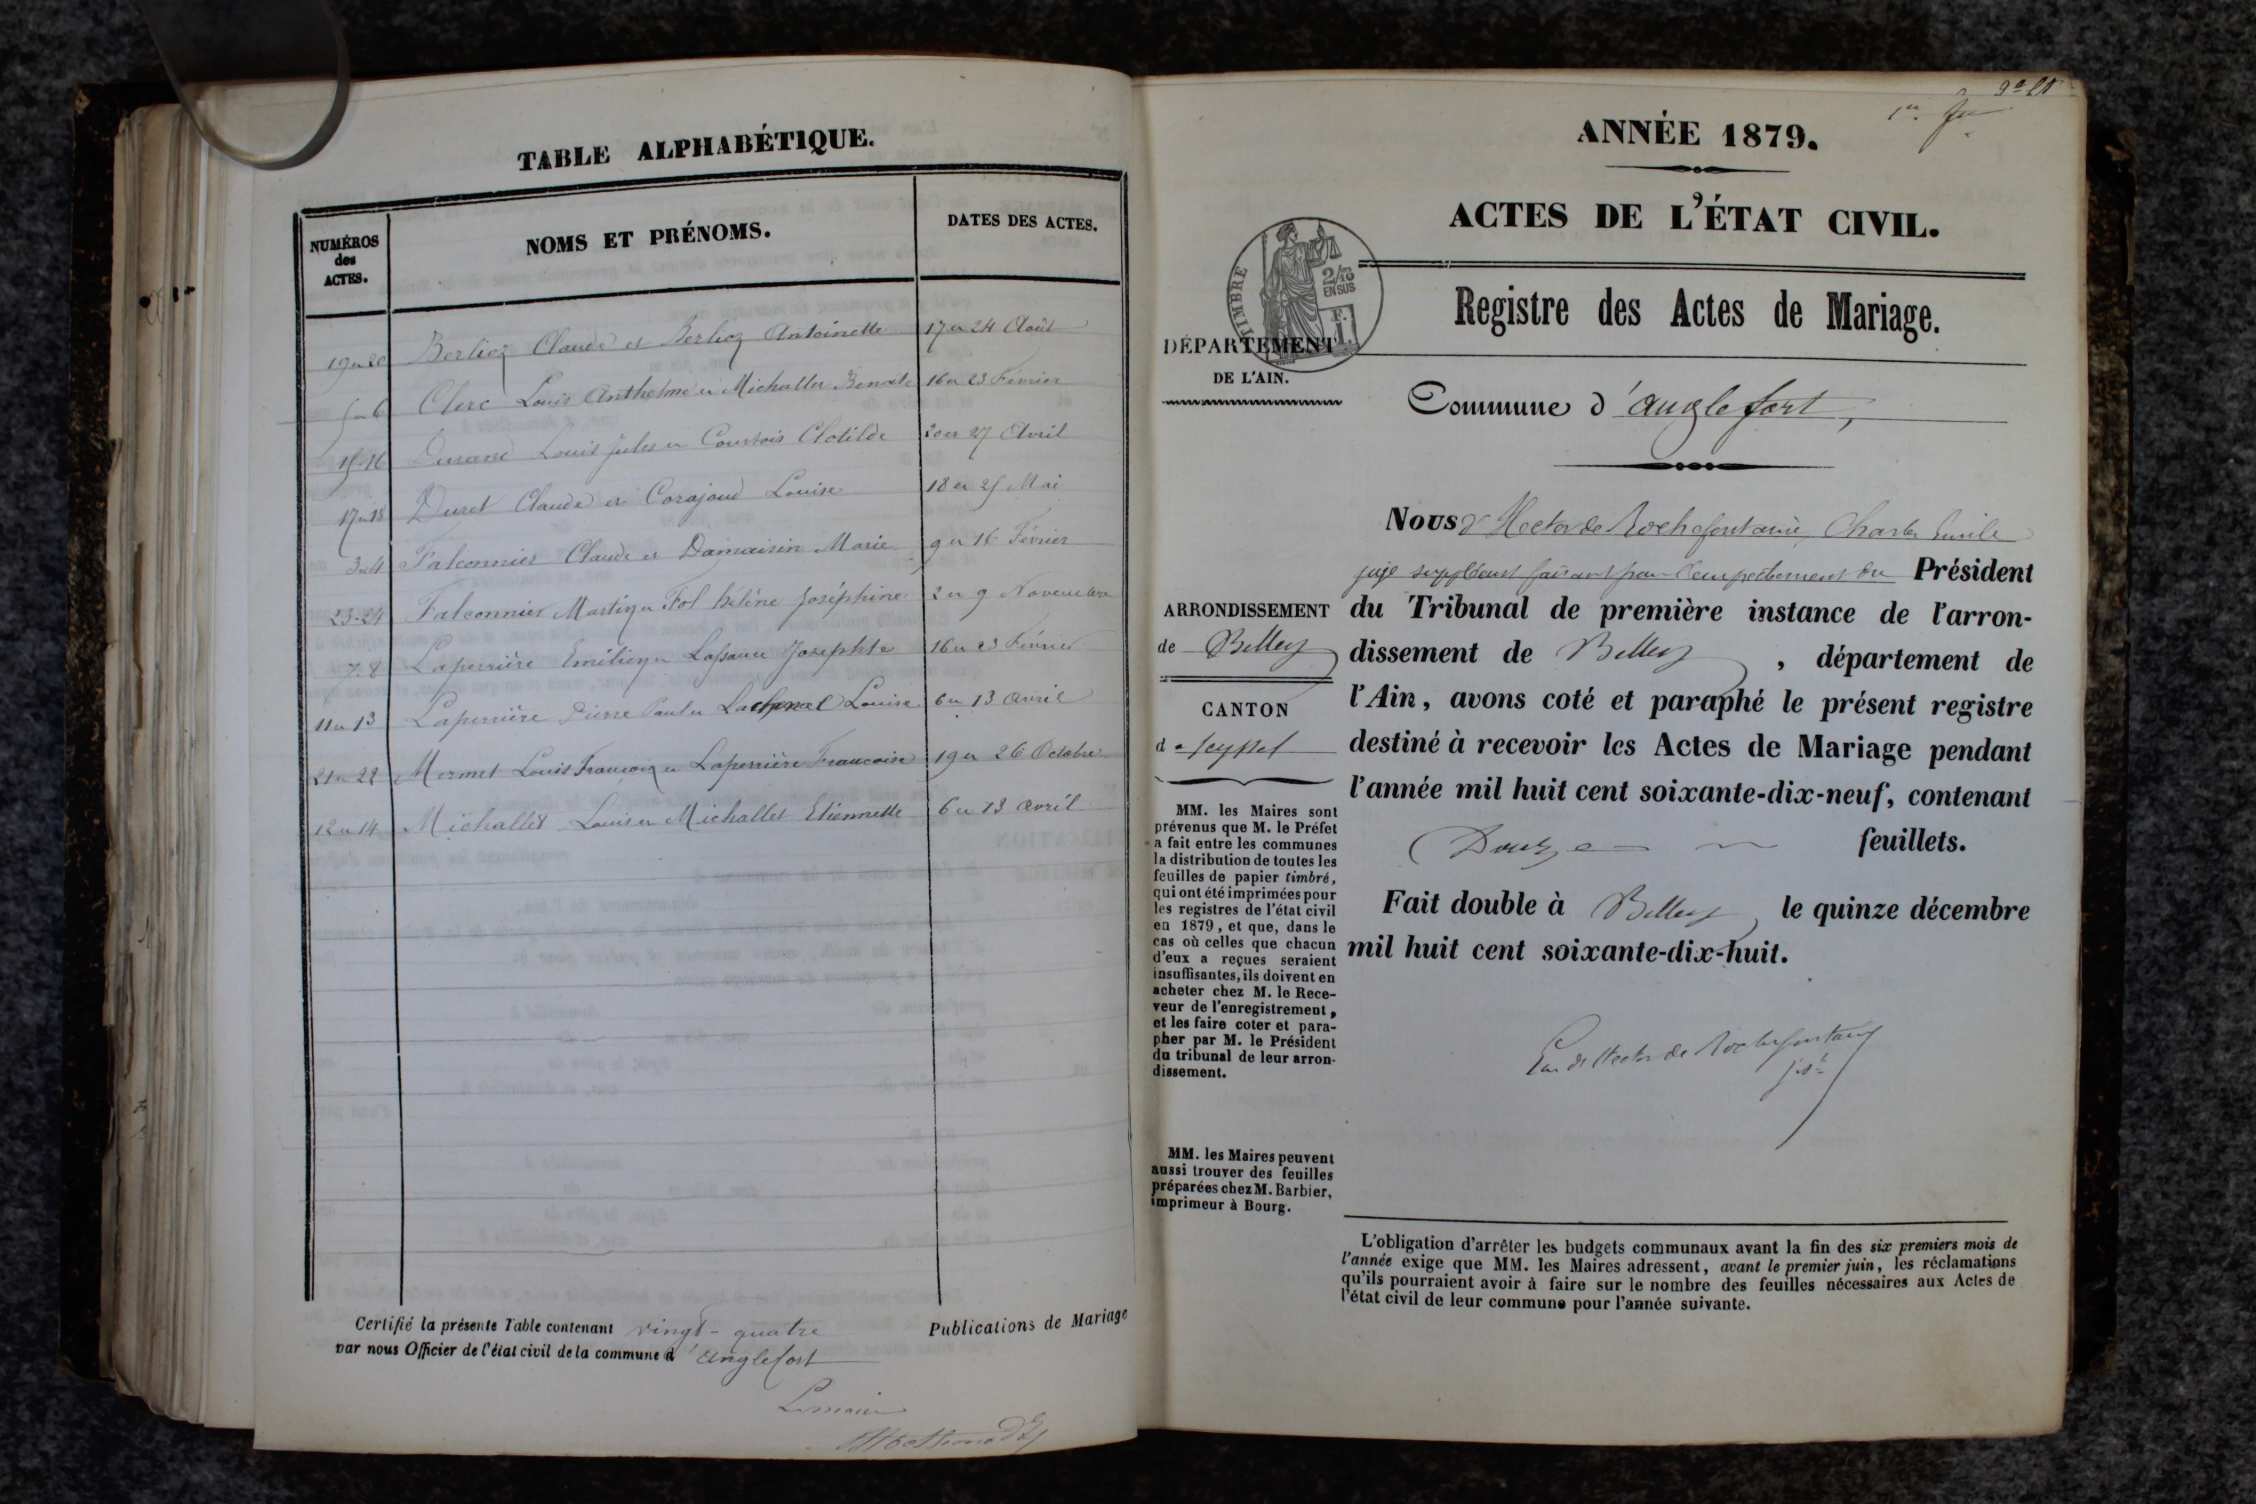 TABLE ALPHABÉTIQUE.
NUMÉROS
des
ACTES.
NOMS ET PRÉNOMS.
DATES DES ACTES.
19 et 20 Berlioz Claude et Berlioz Antoinette 17 et 24 Août
5 et 6 Clerc Louis Anthelme et Michallet Benoite 16 et 23 Février
15-16 Durand Louis Jules et Courtois Clotilde 20 et 27 Avril
17 et 18 Duret Claude et Corajoud Louise 18 et 25 Mai
3 et 4 Falconnier Claude et Damaisin Marie 9 et 16 Février
23-24 Falconnier Martin et Fol hélène Joséphine 2 et 9 Novembre
7.8 Laperrière Emilien et Josephte 16 et 23 Février
11 et 13 Laperrière Pierre Paul et Lachenal Louise 6 et 13 avril
21 et 22 Mermet Louis François et Laperrière Francoise 19 et 26 Octobre
12 et 14 Michallet Louis et Michallet Etiennette 6 et 13 avril
Certifié la présente Table contenant vingt-quatre Publications de Mariage
par nous Officier de l'état civil de la commune d'anglefort
Le maire
2a 20
1er
ANNÉE 1879.
ACTES DE L'ÉTAT CIVIL.
TIMBRE
2/10
EN SUS
F.
1.
Registre des Actes de Mariage.
DÉPARTEMENT
DE L'AIN.
Commune d'anglefort,
Nous d'Hector de Rochefontaine, Charles Emile
juge suppléant faisant pour l'empechement du Président
du Tribunal de première instance de l'arron-
dissement de Belley, département de
l'Ain, avons coté et paraphé le présent registre
destiné à recevoir les Actes de Mariage pendant
l'année mil huit cent soixante-dix-neuf, contenant
Douze feuillets.
Fait double à Belley le quinze décembre
mil huit cent soixante-dix-huit.
d'Hector de Rochefontaine
j.st
ARRONDISSEMENT
de Belley
CANTON
de Seyssel
MM. les Maires sont
prévenus que M. le Préfet
a fait entre les communes
la distribution de toutes les
feuilles de papier timbré,
qui ont été imprimées pour
les registres de l'état civil
en 1879, et que, dans le
cas où celles que chacun
d'eux a reçues seraient
insuffisantes, ils doivent en
acheter chez M. le Rece-
veur de l'enregistrement,
et les faire coter et para-
pher par M. le Président
du tribunal de leur arron-
dissement.
MM. les Maires peuvent
aussi trouver des feuilles
préparées chez M. Barbier,
imprimeur à Bourg.
L'obligation d'arrêter les budgets communaux avant la fin des six premiers mois de
l'année exige que MM. les Maires adressent, avant le premier juin, les réclamations
qu'ils pourraient avoir à faire sur le nombre des feuilles nécessaires aux Actes de
l'état civil de leur commune pour l'année suivante.